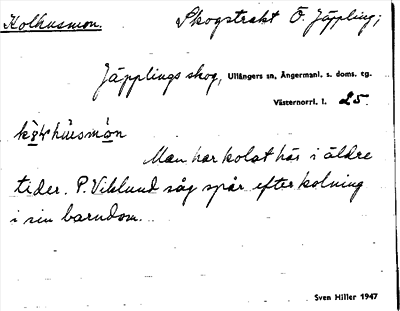 Kolhusmon. Skogstrakt Ö. Jäppling;
Jäpplings skog, Ullångers sn, Ångermanl. s. doms. tg.
Västernorrl. l. 25.
hùsmòn
Man har kolat här i äldre
tider. P. Viklund såg spår efter kolning
i sin barndom.
Sven Hiller 1947